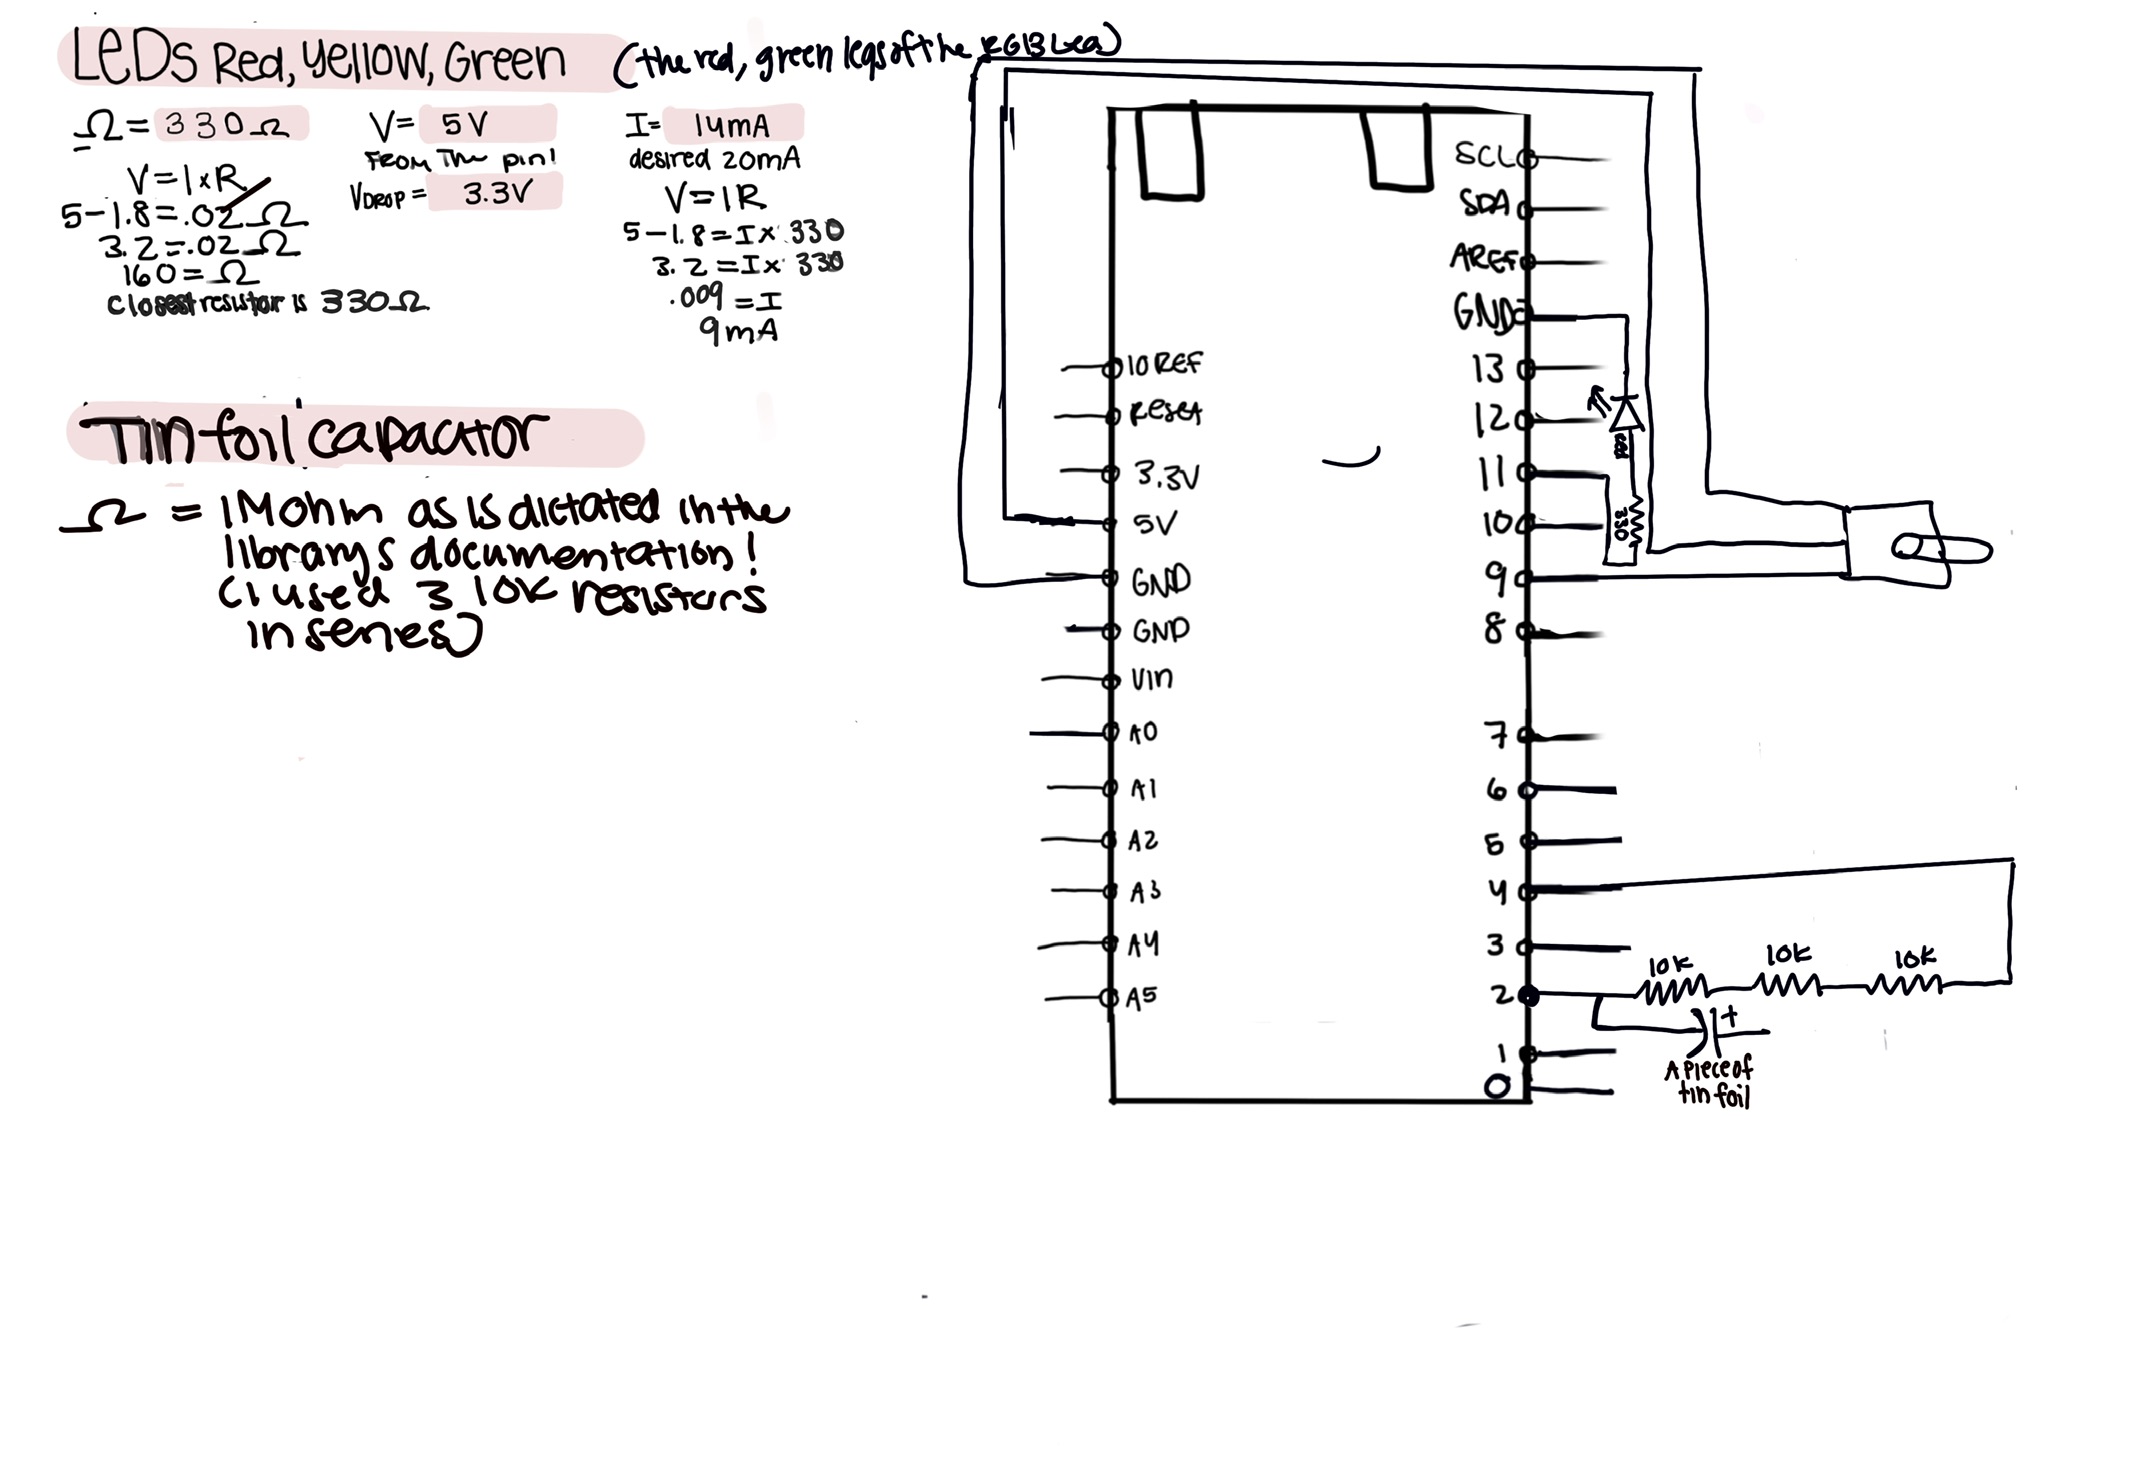 LEDs Red, Yellow, Green (the red, green legs of the RGB Led)
Ω = 330Ω
V = I x R
5-1.8 = .02 Ω
3.2 = .02 Ω
160 = Ω
closest resistor is 330Ω
V = 5V
FROM The pin!
VDROP = 3.3V
I = 14mA
desired 20mA
V = IR
5-1.8 = I x 330
3.2 = I x 330
.009 = I
9mA
Tin foil capacitor
Ω = 1Mohm as is dictated in the
librarys documentation!
(I used 3 10K resistors
in series)
IOREF
RESET
3.3V
5V
GND
GND
Vin
A0
A1
A2
A3
A4
A5
SCL
SDA
AREF
GND
13
12
11
10
9
8
7
6
5
4
3
2
1
0
red
330
10K
10K
10K
+
A piece of
tin foil